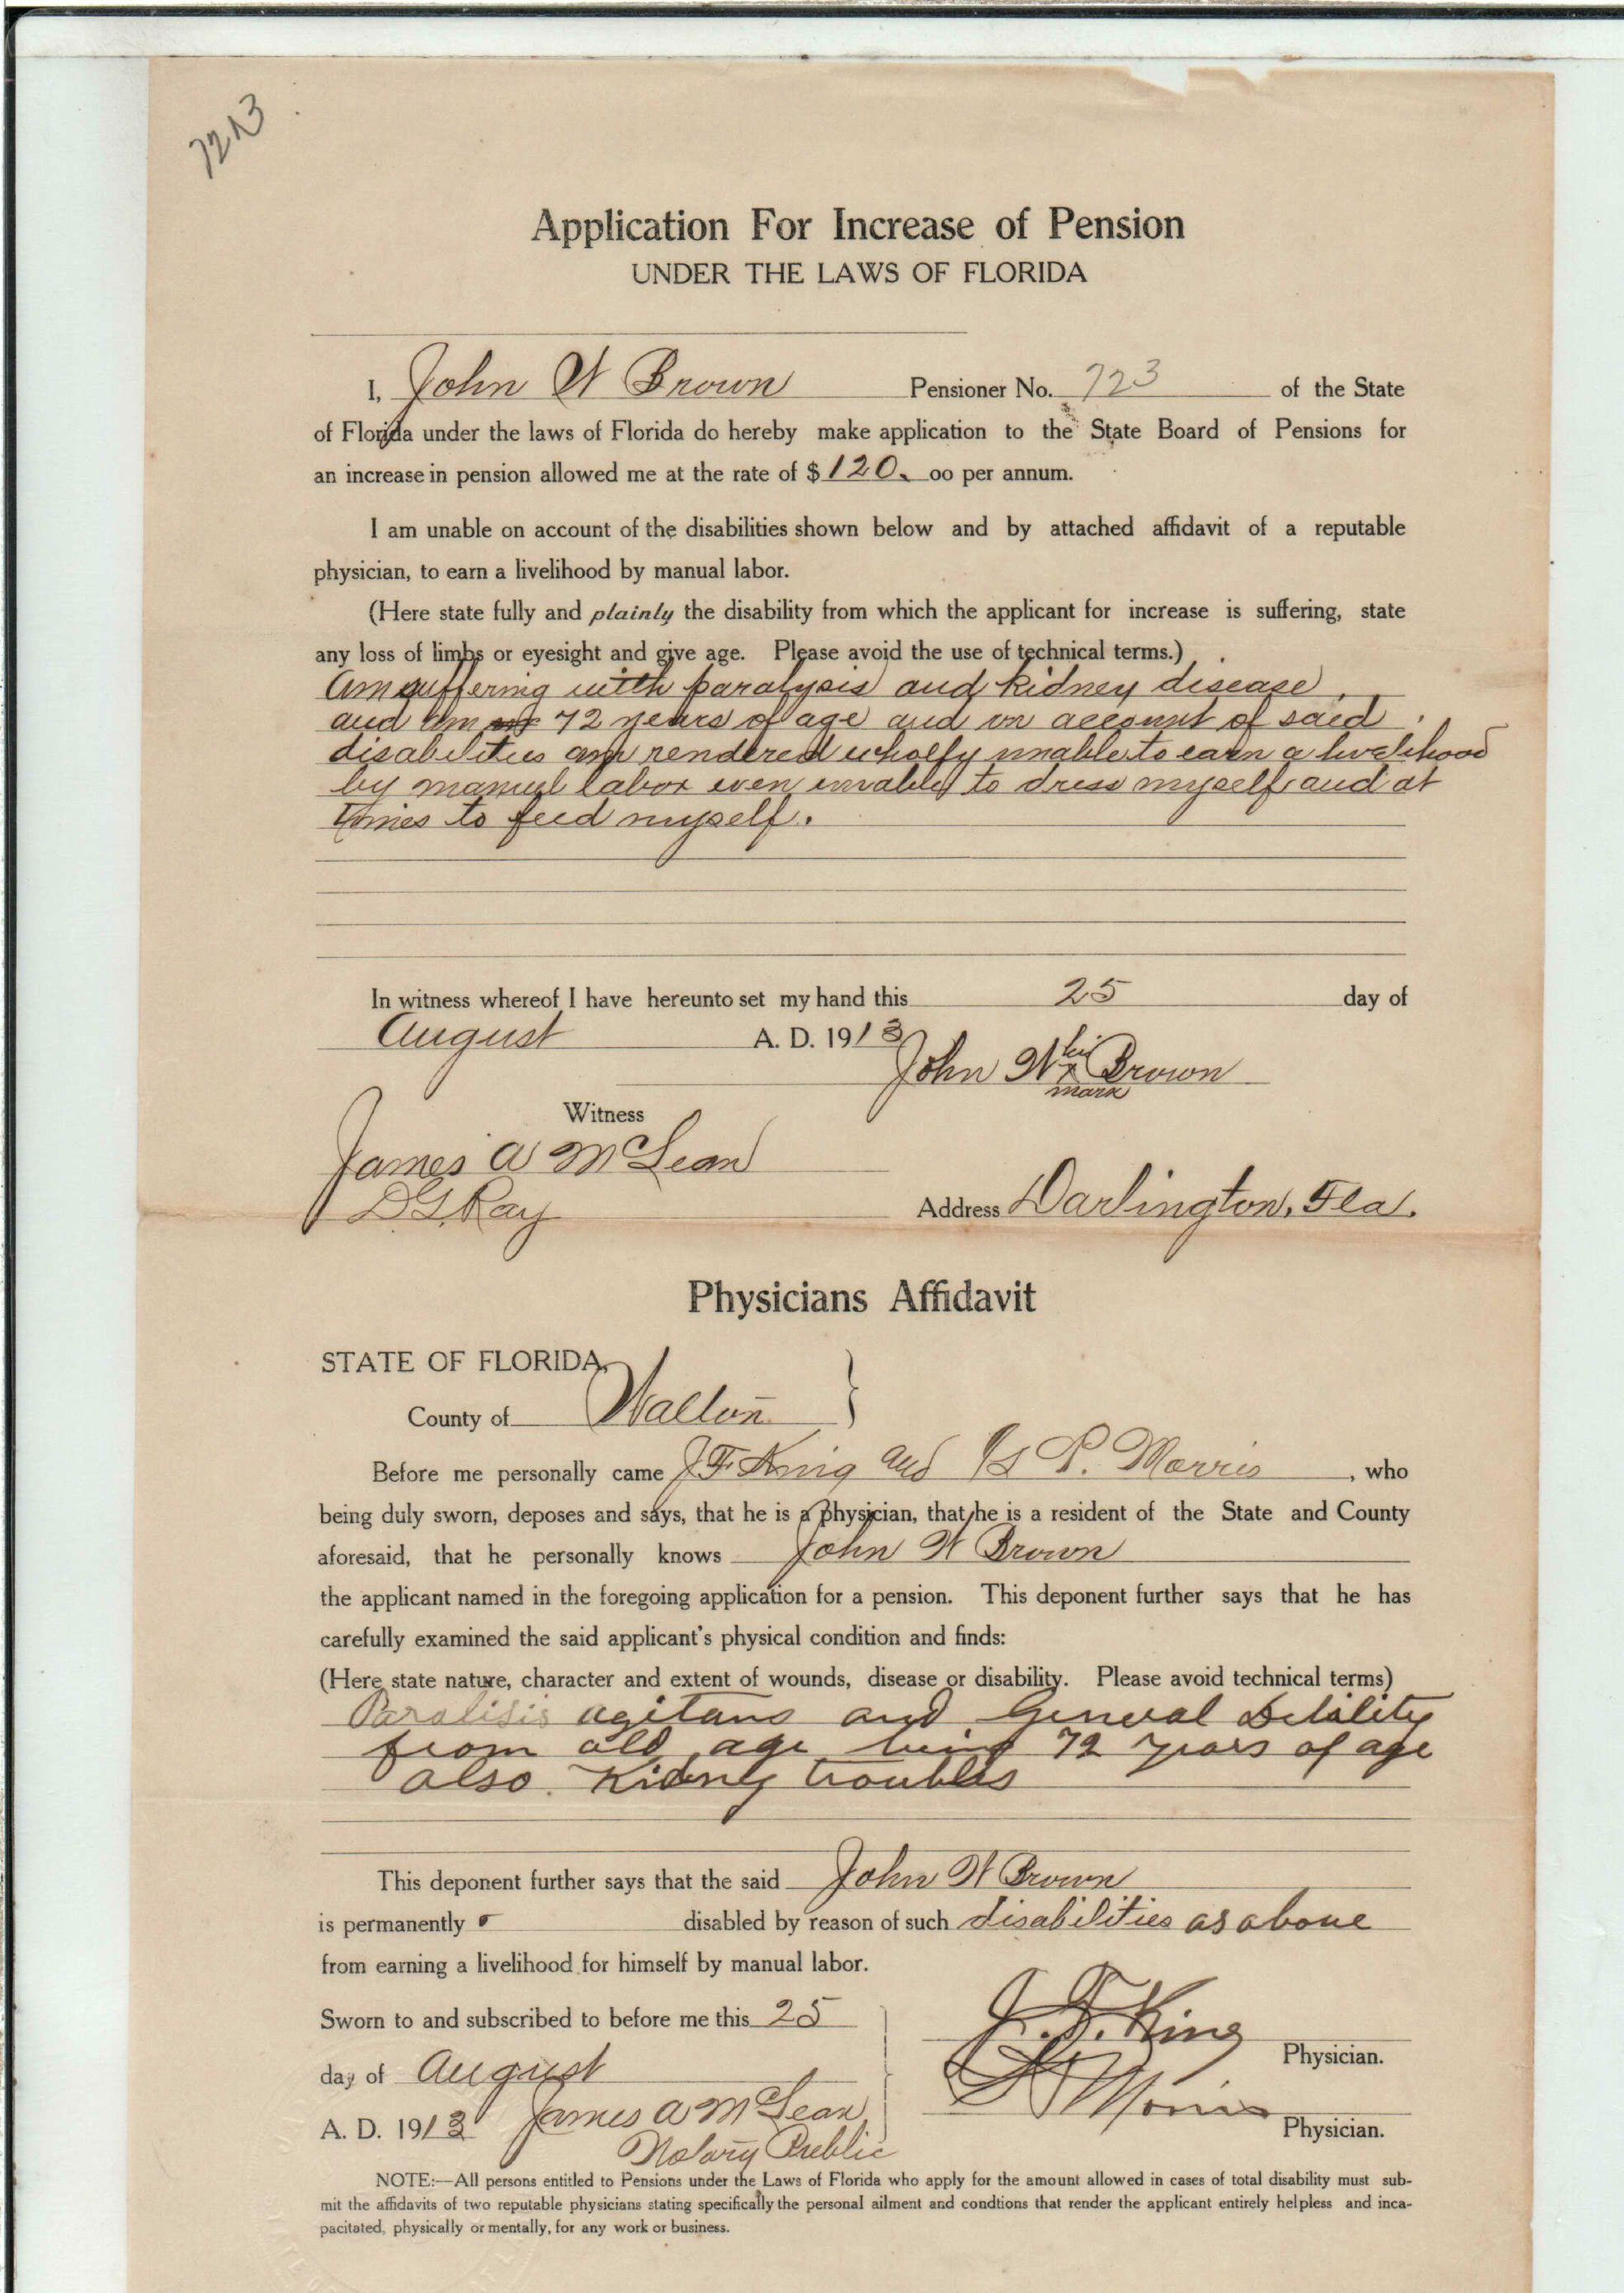 7213
Application For Increase of Pension
UNDER THE LAWS OF FLORIDA
I, John W Brown Pensioner No. 723 of the State
of Florida under the laws of Florida do hereby make application to the State Board of Pensions for
an increase in pension allowed me at the rate of $ 120. oo per annum.
I am unable on account of the disabilities shown below and by attached affidavit of a reputable
physician, to earn a livelihood by manual labor.
(Here state fully and plainly the disability from which the applicant for increase is suffering, state
any loss of limbs or eyesight and give age. Please avoid the use of technical terms.)
Am suffering with paralysis and kidney disease
and am 72 years of age and on account of said
disabilities am rendered wholly unable to earn a livelihood
by manuel labor even unable to dress myself and at
times to feed myself.
In witness whereof I have hereunto set my hand this 25 day of
August A. D. 1913
John W his x mark Brown
Witness
James A McLean
D G. Ray
Address Darlington, Fla.
Physicians Affidavit
STATE OF FLORIDA,
County of Walton }
Before me personally came J F King and P. Morris, who
being duly sworn, deposes and says, that he is a physician, that he is a resident of the State and County
aforesaid, that he personally knows John W Brown
the applicant named in the foregoing application for a pension. This deponent further says that he has
carefully examined the said applicant's physical condition and finds:
(Here state nature, character and extent of wounds, disease or disability. Please avoid technical terms)
Paralisis agitans and General Debility
from old age being 72 years of age
also Kidney troubles
This deponent further says that the said John W Brown
is permanently disabled by reason of such disabilities as above
from earning a livelihood for himself by manual labor.
Sworn to and subscribed to before me this 25
day of August
A. D. 1913 James A McLean
Notary Public
J. F. King
Physician.
Morris
Physician.
NOTE:—All persons entitled to Pensions under the Laws of Florida who apply for the amount allowed in cases of total disability must sub-
mit the affidavits of two reputable physicians stating specifically the personal ailment and condtions that render the applicant entirely helpless and inca-
pacitated, physically or mentally, for any work or business.